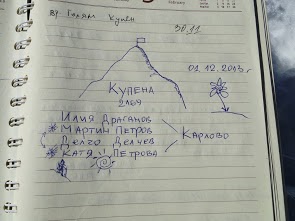 вр. Голям Купен
30.11
01.12.2013г
КУПЕНА
2169
Илия Драганов
Мартин Петров
Делчо Делчев
Катя Петрова
Карлово